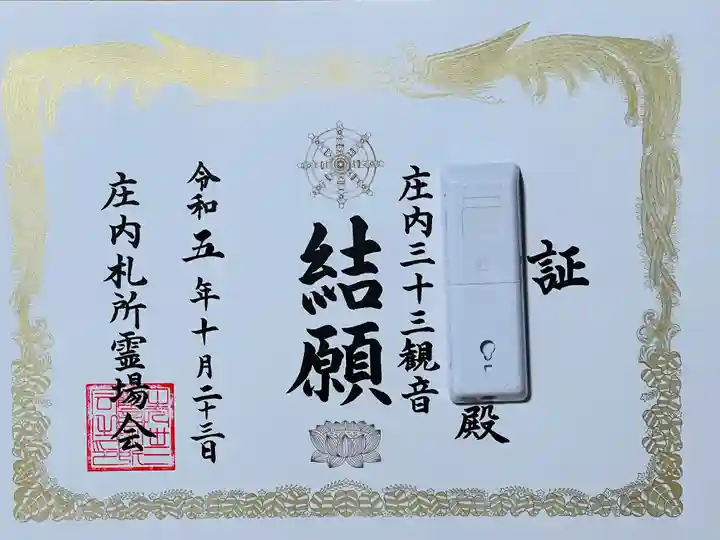 証
殿
庄内三十三観音
結願
令和五年十月二十三日
庄内札所霊場会